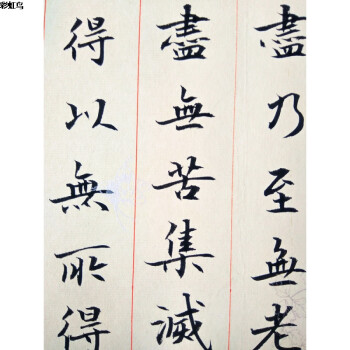 彩虹鸟
盡乃至無老
盡無苦集滅
得以無所得